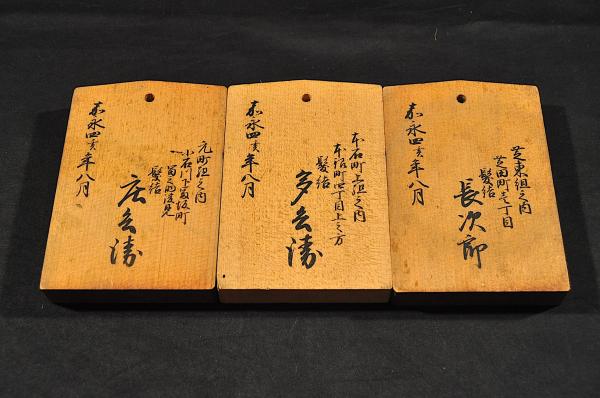 芝東組之内
芝田町壱丁目
髪結
長次郎
嘉永四亥年八月
本石町上組之内
本銀町四丁目上之方
髪結
多兵衛
嘉永四亥年八月
元町組之内
小石川下富坂町
髪結
庄兵衛
嘉永四亥年八月